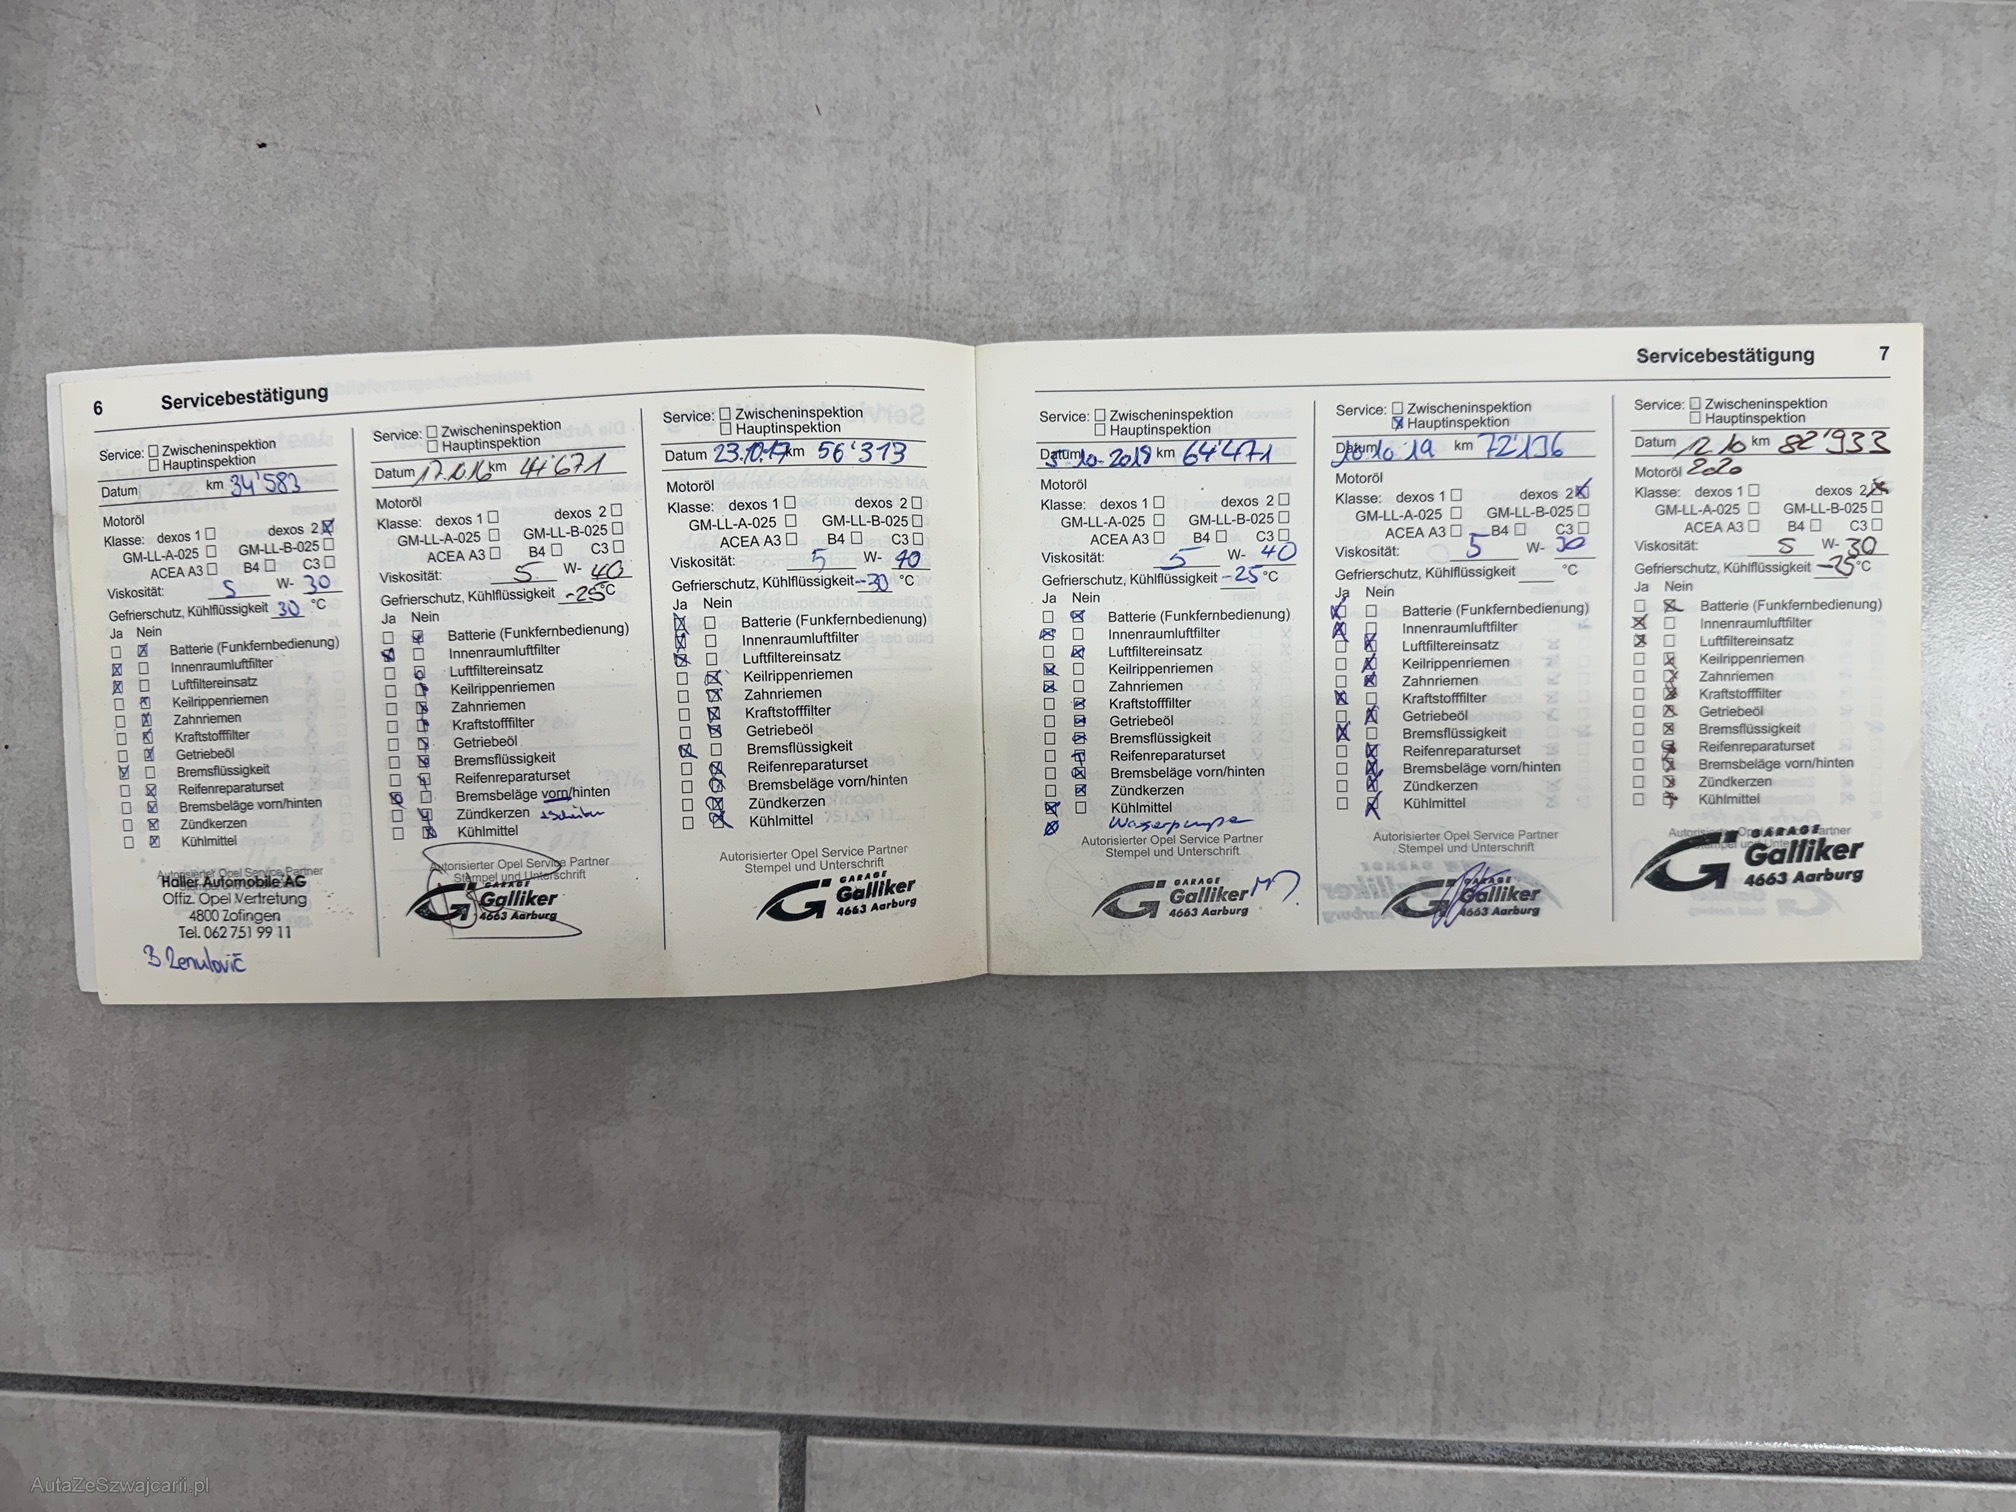 6 Servicebestätigung
Service: Zwischeninspektion
Hauptinspektion
Datum km 34'583
Motoröl
Klasse: dexos 1 dexos 2
GM-LL-A-025 GM-LL-B-025
ACEA A3 B4 C3
Viskosität: 5 W- 30
Gefrierschutz, Kühlflüssigkeit 30 °C
Ja Nein
Batterie (Funkfernbedienung)
Innenraumluftfilter
Luftfiltereinsatz
Keilrippenriemen
Zahnriemen
Kraftstofffilter
Getriebeöl
Bremsflüssigkeit
Reifenreparaturset
Bremsbeläge vorn/hinten
Zündkerzen
Kühlmittel
Autorisierter Opel Service Partner
Haller Automobile AG
Offiz. Opel Vertretung
4800 Zofingen
Tel. 062 751 99 11
Service: Zwischeninspektion
Hauptinspektion
Datum km 44'671
Motoröl
Klasse: dexos 1 dexos 2
GM-LL-A-025 GM-LL-B-025
ACEA A3 B4 C3
Viskosität: 5 W- 40
Gefrierschutz, Kühlflüssigkeit -25 °C
Ja Nein
Batterie (Funkfernbedienung)
Innenraumluftfilter
Luftfiltereinsatz
Keilrippenriemen
Zahnriemen
Kraftstofffilter
Getriebeöl
Bremsflüssigkeit
Reifenreparaturset
Bremsbeläge vorn/hinten
Zündkerzen +Scheiben
Kühlmittel
Autorisierter Opel Service Partner
Stempel und Unterschrift
GARAGE
Galliker
4663 Aarburg
Service: Zwischeninspektion
Hauptinspektion
Datum 23.10.17 km 56'313
Motoröl
Klasse: dexos 1 dexos 2
GM-LL-A-025 GM-LL-B-025
ACEA A3 B4 C3
Viskosität: 5 W- 40
Gefrierschutz, Kühlflüssigkeit -30 °C
Ja Nein
Batterie (Funkfernbedienung)
Innenraumluftfilter
Luftfiltereinsatz
Keilrippenriemen
Zahnriemen
Kraftstofffilter
Getriebeöl
Bremsflüssigkeit
Reifenreparaturset
Bremsbeläge vorn/hinten
Zündkerzen
Kühlmittel
Autorisierter Opel Service Partner
Stempel und Unterschrift
GARAGE
Galliker
4663 Aarburg
Servicebestätigung 7
Service: Zwischeninspektion
Hauptinspektion
Datum 3.10.2018 km 64'471
Motoröl
Klasse: dexos 1 dexos 2
GM-LL-A-025 GM-LL-B-025
ACEA A3 B4 C3
Viskosität: 5 W- 40
Gefrierschutz, Kühlflüssigkeit -25 °C
Ja Nein
Batterie (Funkfernbedienung)
Innenraumluftfilter
Luftfiltereinsatz
Keilrippenriemen
Zahnriemen
Kraftstofffilter
Getriebeöl
Bremsflüssigkeit
Reifenreparaturset
Bremsbeläge vorn/hinten
Zündkerzen
Kühlmittel
Wasserpumpe
Autorisierter Opel Service Partner
Stempel und Unterschrift
GARAGE
Galliker
4663 Aarburg
Service: Zwischeninspektion
Hauptinspektion
Datum km 72'136
Motoröl
Klasse: dexos 1 dexos 2
GM-LL-A-025 GM-LL-B-025
ACEA A3 B4 C3
Viskosität: 5 W- 30
Gefrierschutz, Kühlflüssigkeit °C
Ja Nein
Batterie (Funkfernbedienung)
Innenraumluftfilter
Luftfiltereinsatz
Keilrippenriemen
Zahnriemen
Kraftstofffilter
Getriebeöl
Bremsflüssigkeit
Reifenreparaturset
Bremsbeläge vorn/hinten
Zündkerzen
Kühlmittel
Autorisierter Opel Service Partner
Stempel und Unterschrift
GARAGE
Galliker
4663 Aarburg
Service: Zwischeninspektion
Hauptinspektion
Datum 12.10 km 82'933
Motoröl 2020
Klasse: dexos 1 dexos 2
GM-LL-A-025 GM-LL-B-025
ACEA A3 B4 C3
Viskosität: 5 W- 30
Gefrierschutz, Kühlflüssigkeit -25 °C
Ja Nein
Batterie (Funkfernbedienung)
Innenraumluftfilter
Luftfiltereinsatz
Keilrippenriemen
Zahnriemen
Kraftstofffilter
Getriebeöl
Bremsflüssigkeit
Reifenreparaturset
Bremsbeläge vorn/hinten
Zündkerzen
Kühlmittel
GARAGE
Galliker
4663 Aarburg
AutaZeSzwajcarii.pl